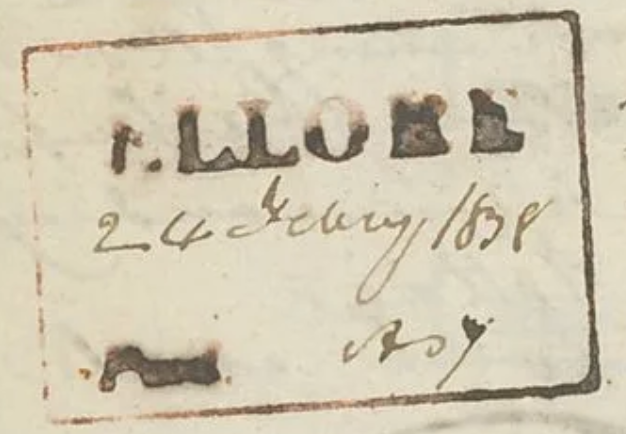 ELLORE
24 Febry 1838